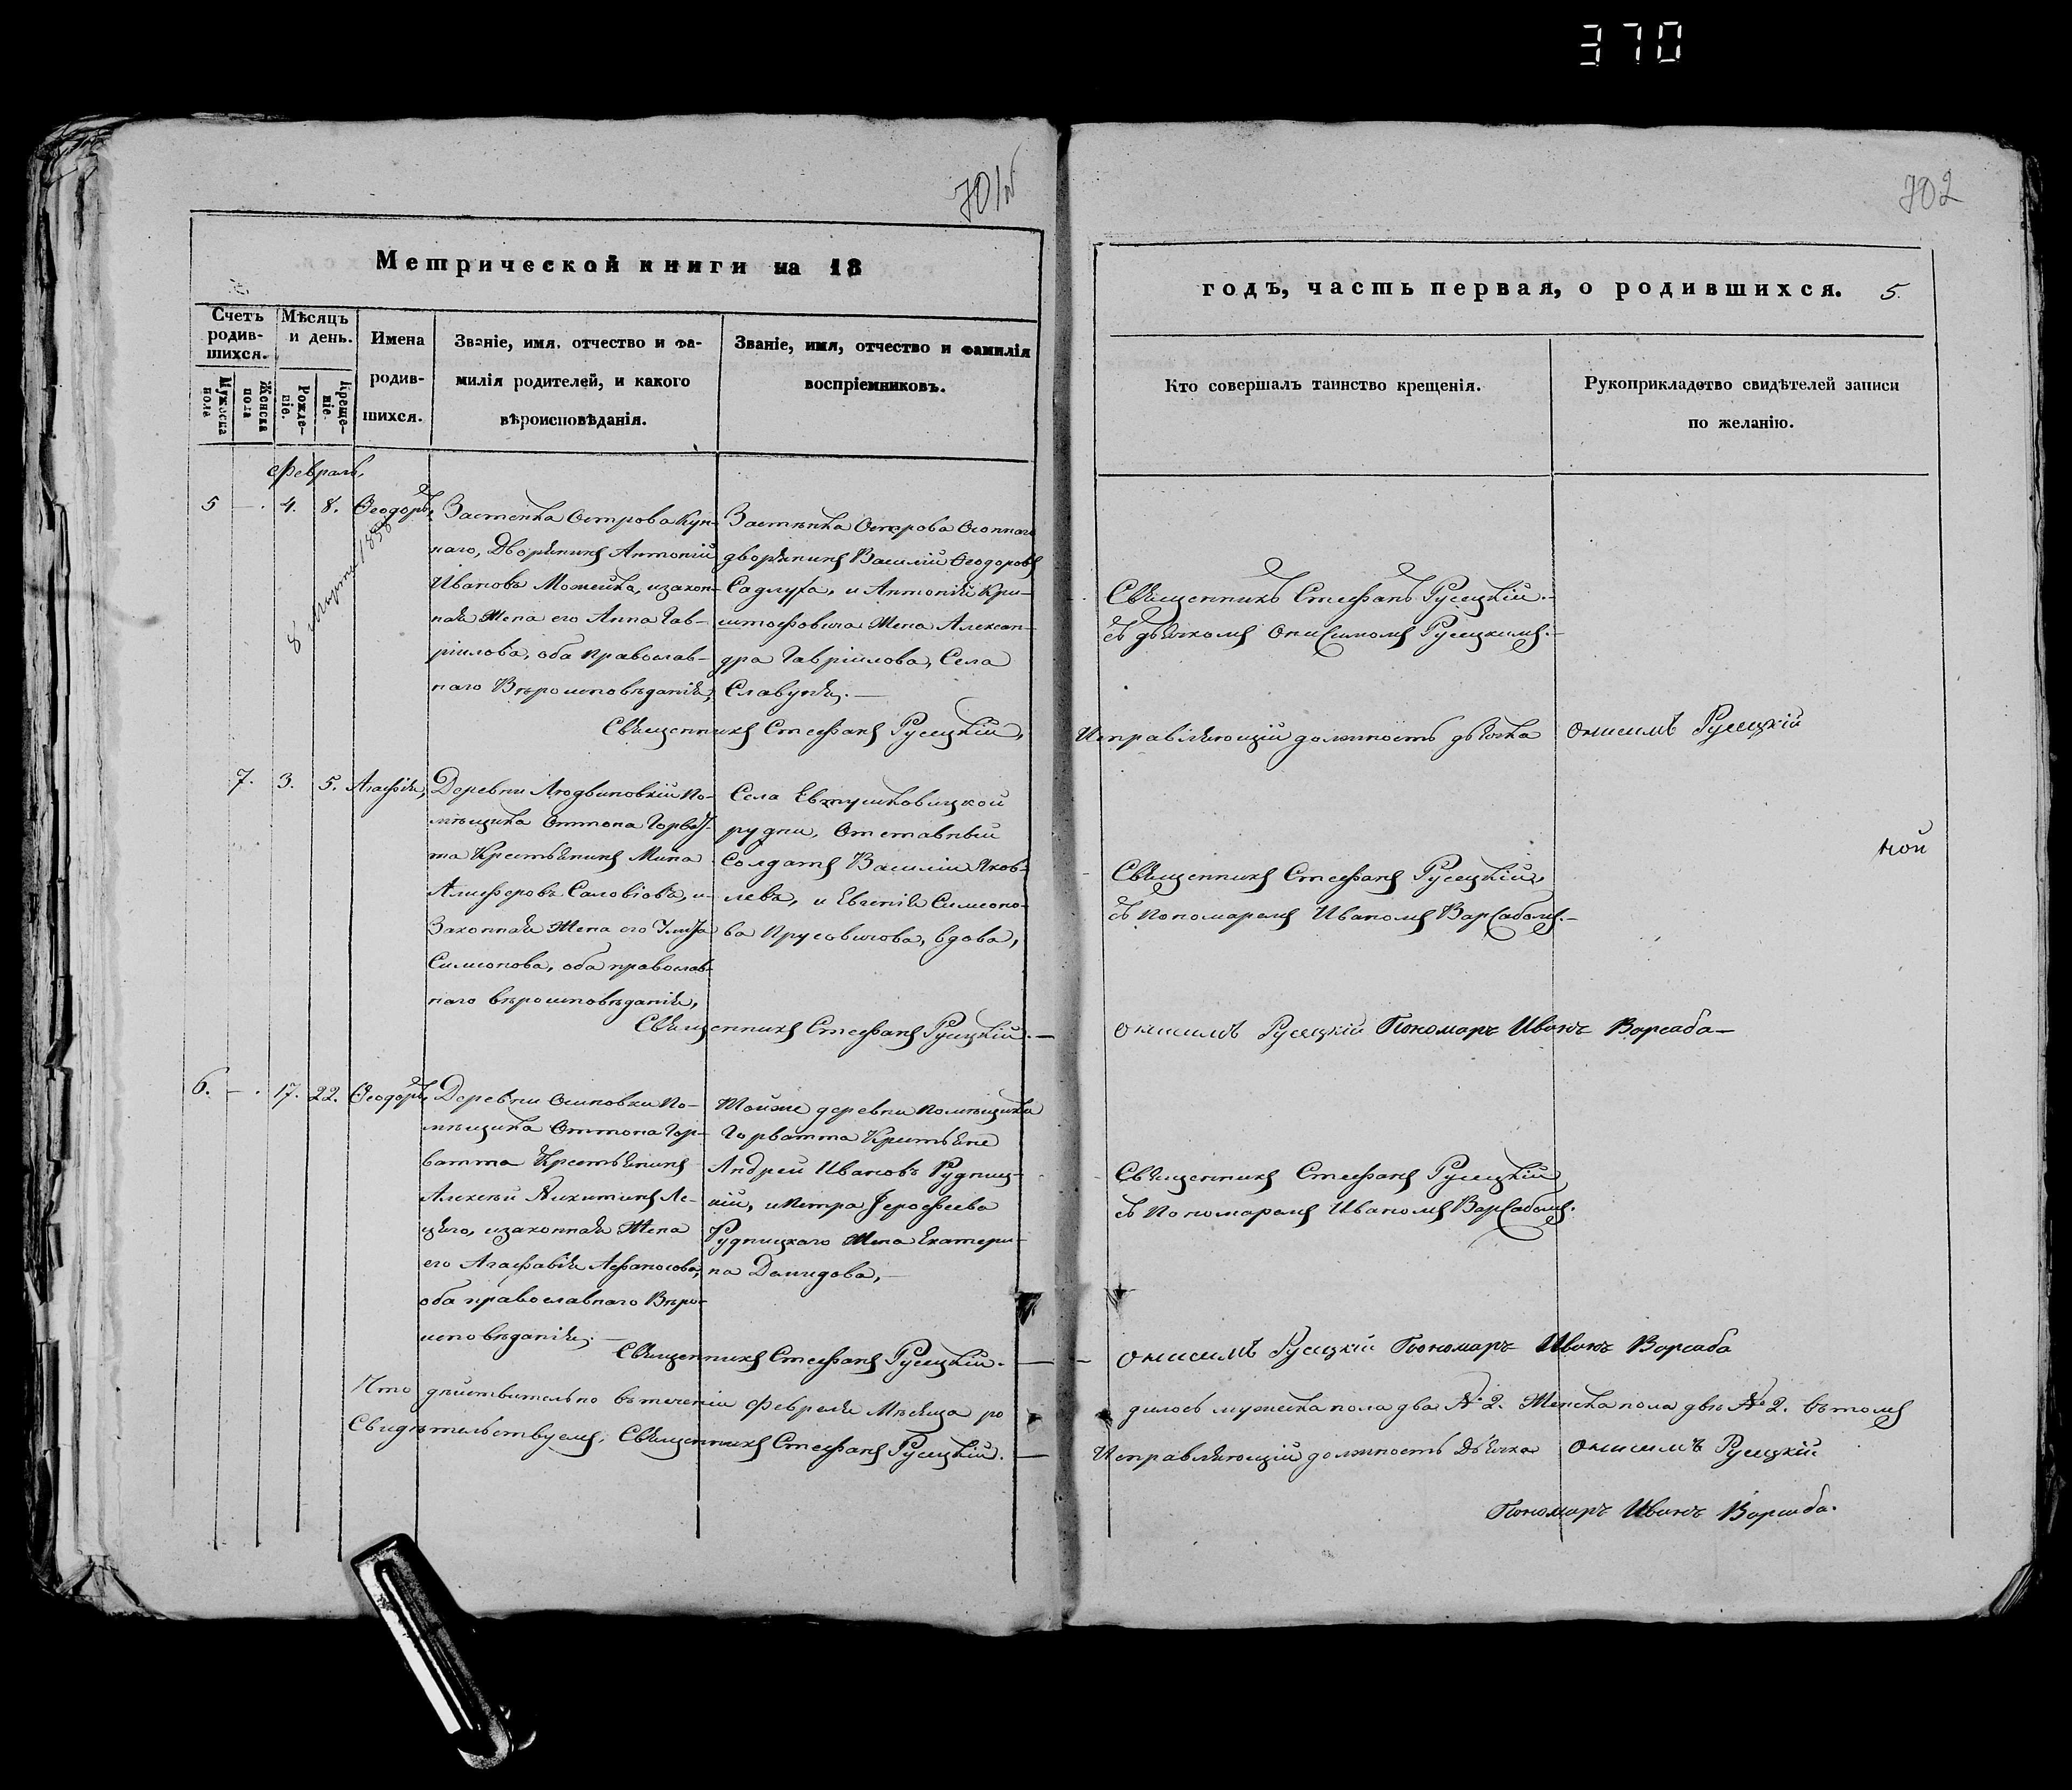 370
702
Метрической книги на 18
годъ, часть первая, о родившихся. 5.
Счетъ родив-шихся.
Мужеска пола
Женска пола
Мѣсяцъ и день.
Рожде-ніе.
Креще-ніе.
Имена
родив-
шихся.
Званіе, имя, отчество и фа-
милія родителей, и какого
вѣроисповѣданія.
Званіе, имя, отчество и фамилія
воспріемниковъ.
Кто совершалъ таинство крещенія.
Рукоприкладство свидѣтелей записи
по желанію.
Февраль,
5 — 4. 8. Ѳеодоръ,
Застенка Острова
наго, Дворянинъ Антоній
Ивановъ Можейка, и закон-
ная Жена его Анна Гав-
ріилова, оба Православ-
наго Вѣроисповѣданія,
Застѣнка Острова
дворянинъ Василій Ѳеодоровъ
Садлуха, и Антонія Кри-
штофовича Жена Алексан-
дра Гавріилова, Села
Славуня. —
Священникъ Стефанъ Русецкій.
съ дьячкомъ Онисимомъ Русецкимъ. —
Священникъ Стефанъ Русецкій,
Исправляющій должность дьячка Онисимъ Русецкій
7. 3. 5. Агафія,
Деревни Людвиновки По-
мѣщика Оттона Горват-
та Крестьянинъ Мина
Алиферовъ Саловіовъ, и
Законная Жена его
Симеонова, оба православ-
наго вѣроисповѣданія,
Села Евтушковицкой
рудни, Отставный
Солдатъ Василій Яков-
левъ, и Евгенія Симеоно-
ва вдова,
ной
Священникъ Стефанъ Русецкій,
съ Пономаремъ Иваномъ Варсабомъ. —
Священникъ Стефанъ Русецкій. —
Онисимъ Русецкій Пономарь Иванъ Варсаба —
6. — 17. 22. Ѳеодоръ,
Деревни Осиповки По-
мѣщика Оттона Гор-
ватта Крестьянинъ
Алексѣй Никитинъ Ле-
цкго, и законная Жена
его Агафія Афанасова,
оба православнаго Вѣро-
исповѣданія, —
Тойже деревни помѣщика
Горватта Крестьяне
Андрей Ивановъ Рудниц-
кій, и Петра Іерофеева
Рудницкаго Жена Екатери-
на Демидова, —
Священникъ Стефанъ Русецкій,
съ Пономаремъ Иваномъ Варсабомъ.
Священникъ Стефанъ Русецкій. —
Онисимъ Русецкій Пономарь Иванъ Варсаба
Что дѣйствительно въ теченіи Февраля Мѣсяца ро
дилось мужеска пола два № 2. Женска пола двѣ № 2. въ томъ
Свидѣтельствуемъ, Священникъ Стефанъ Русецкій. —
Исправляющій должность Дьячка Онисимъ Русецкій
Пономарь Иванъ Варсаба.